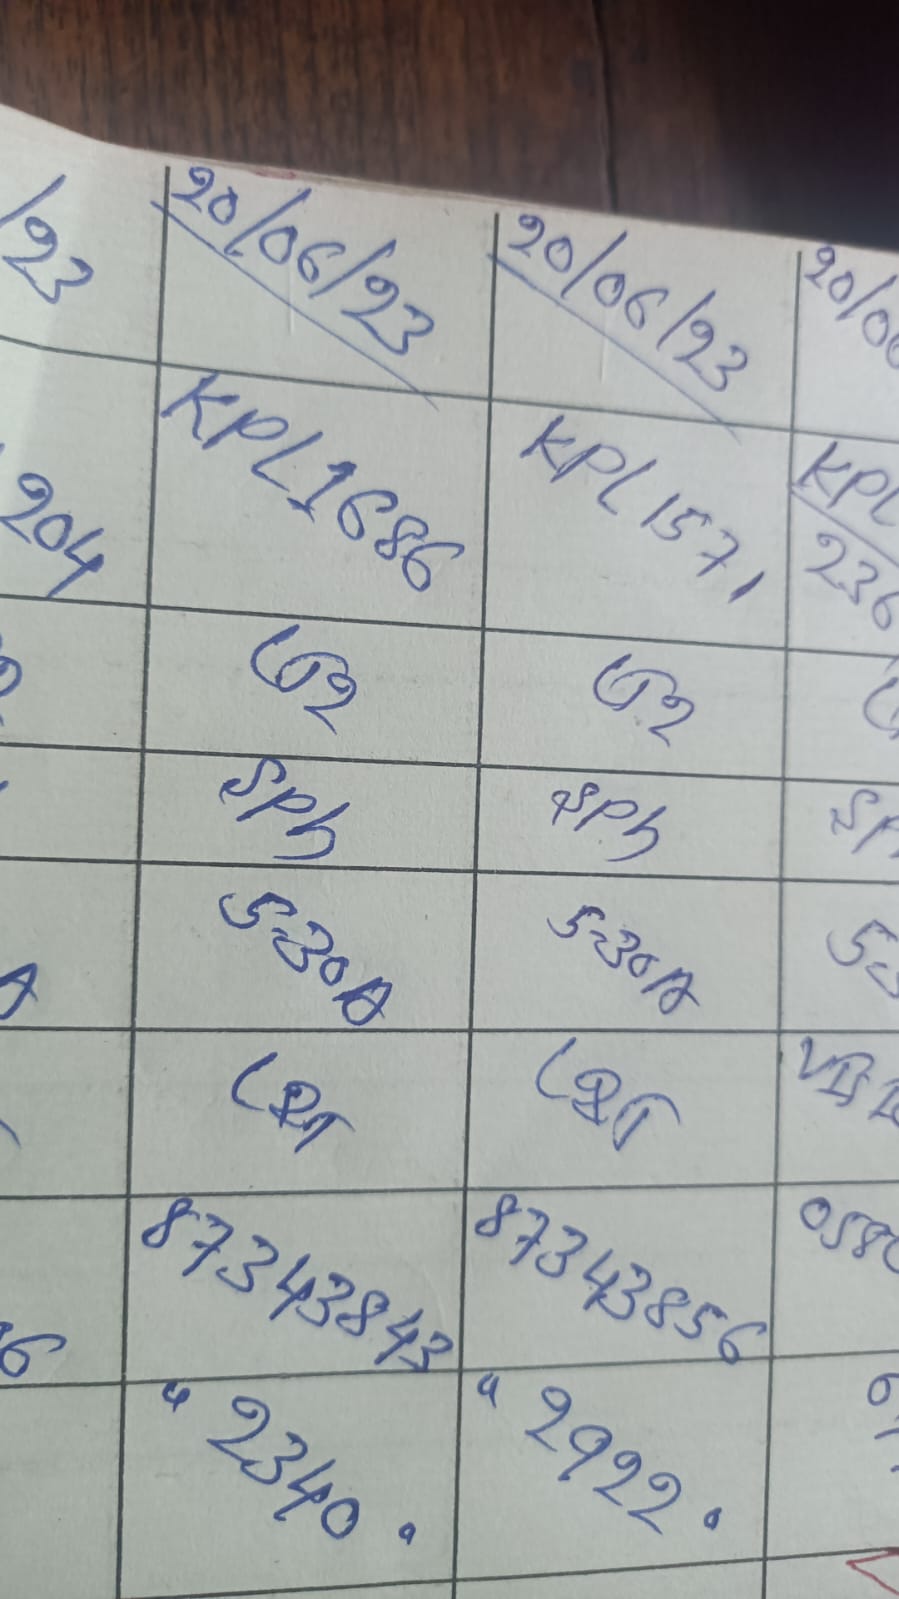 /23 20/06/23 20/06/23 20/06
204 KPL1686 KPL1571 KPL
236
2 G2 G2
Sph Sph SP
A 5-30A 5-30A 5-3
L&T L&T
87343843 87343856 058
6 "2340" "2922"